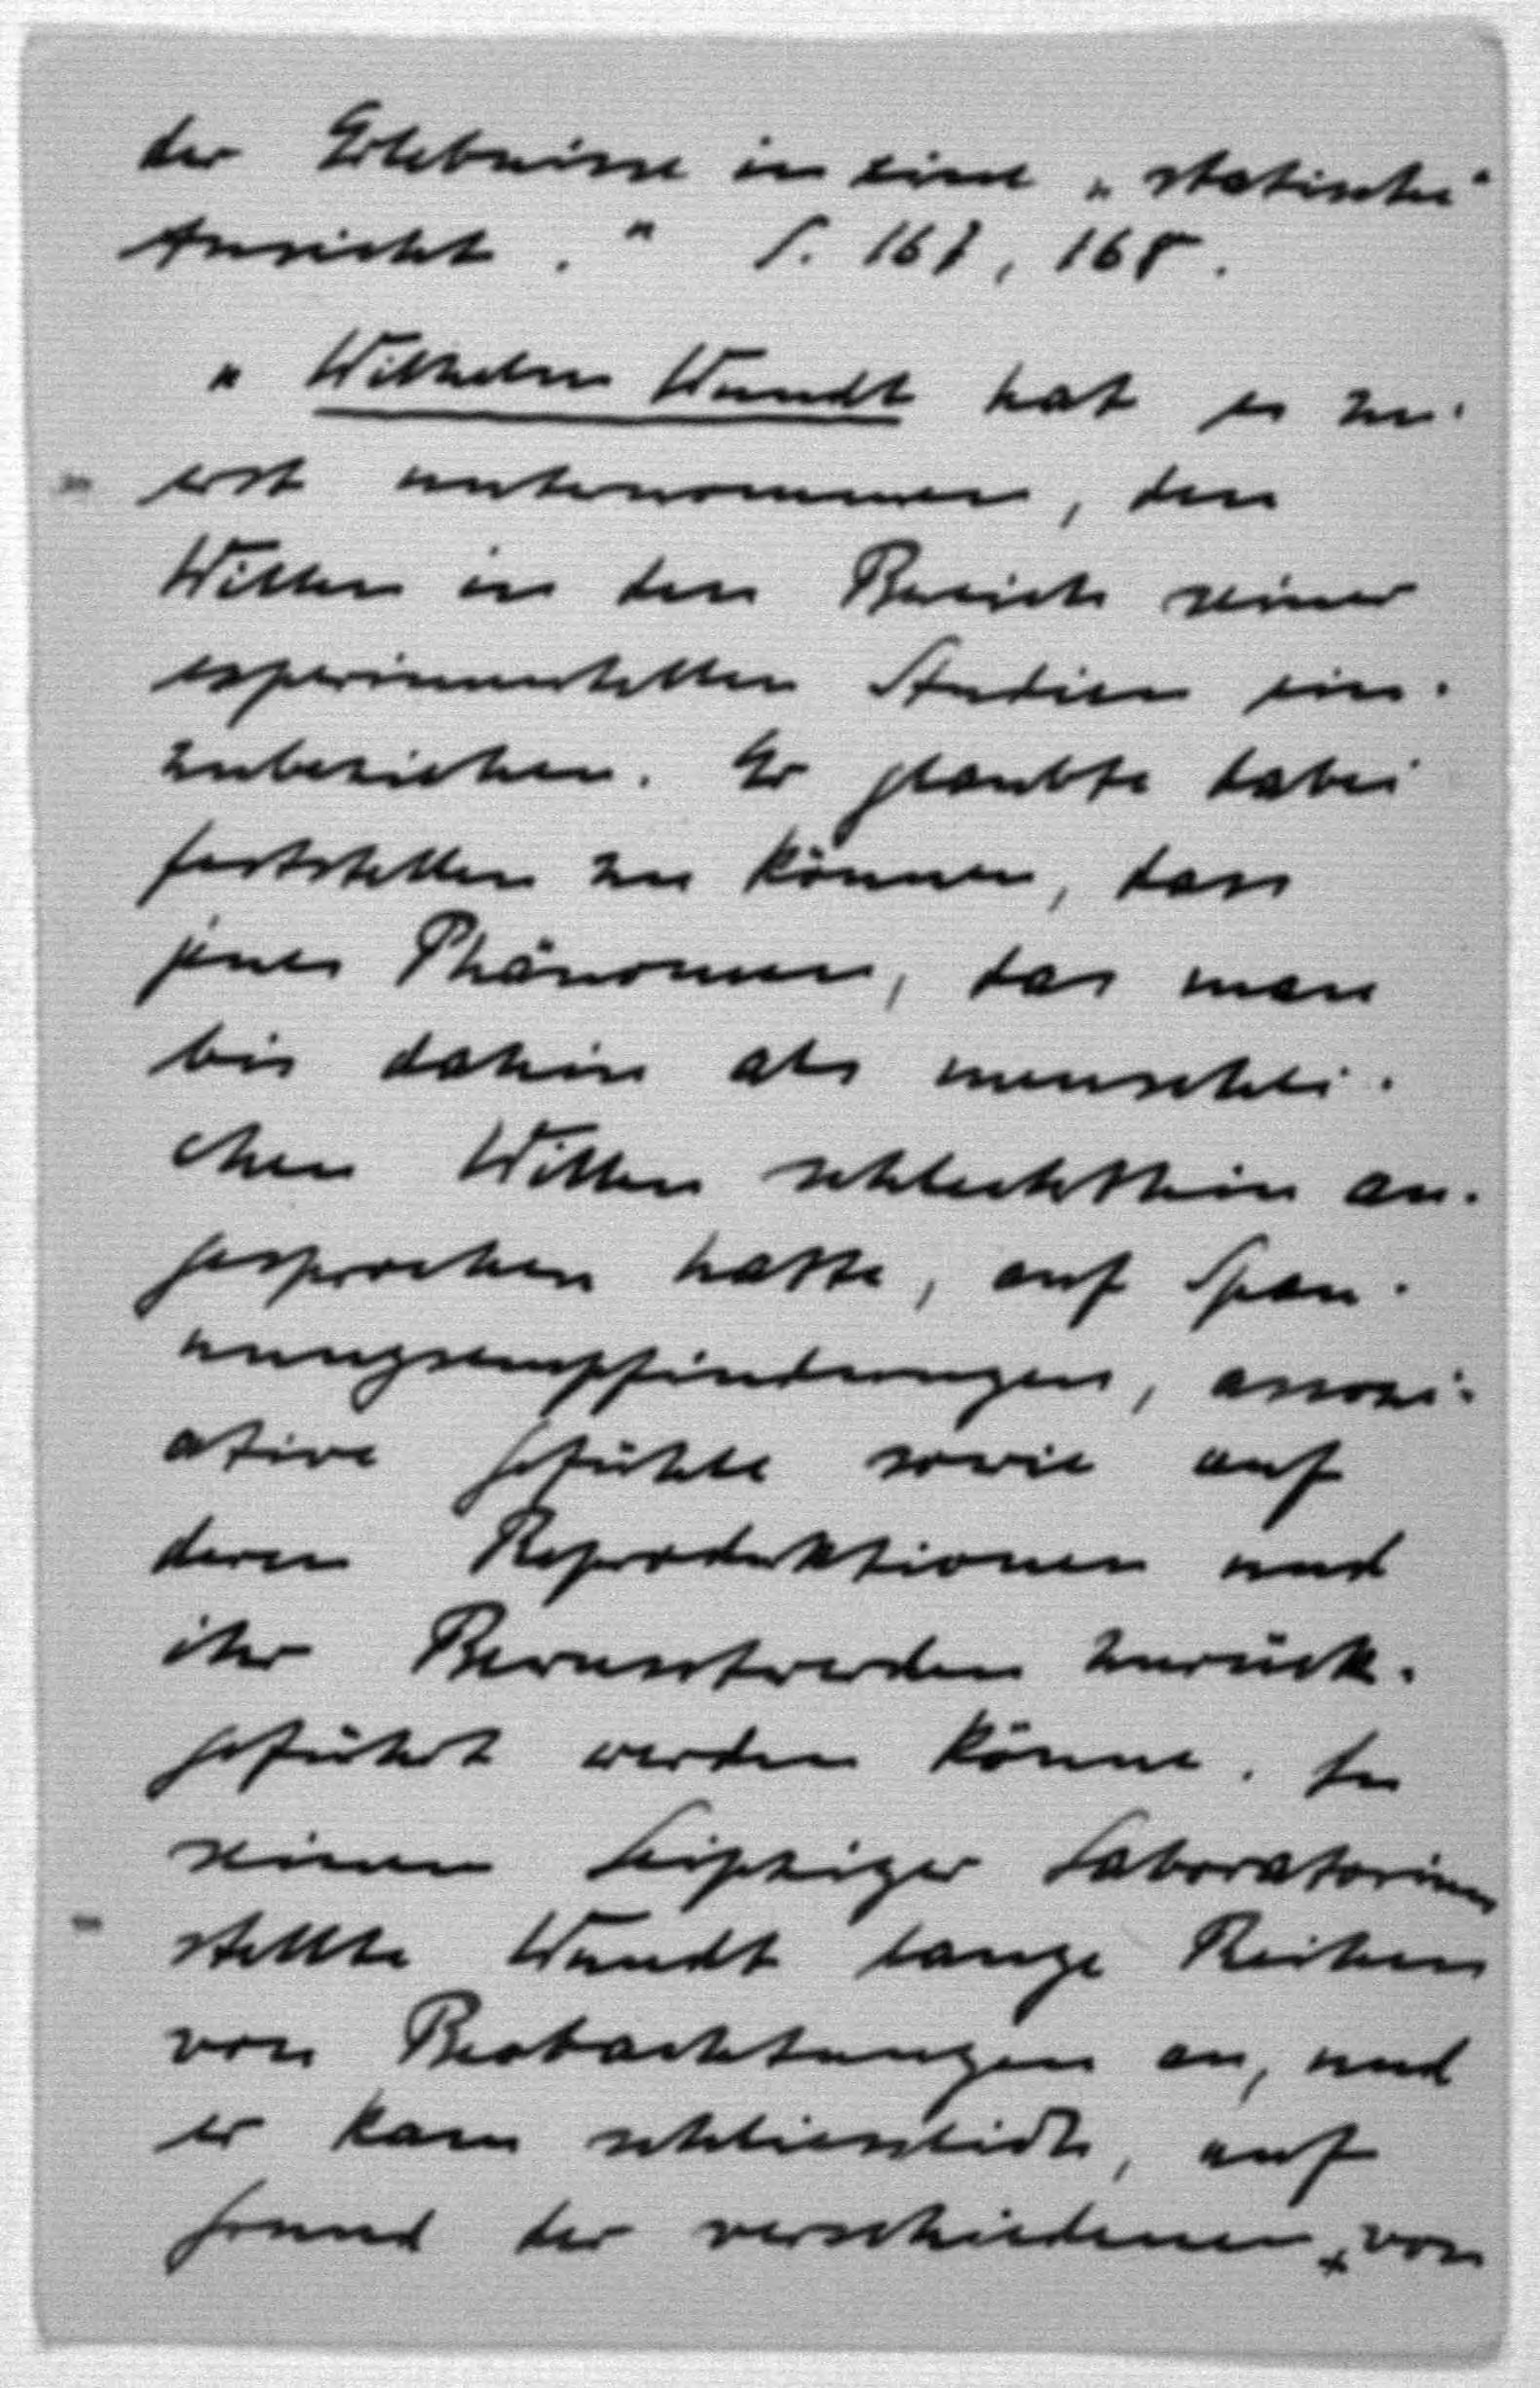 der Erlebnisse in eine „statische"
Ansicht." S. 167, 168.
„Wilhelm Wundt hat es zu-
erst unternommen, den
Willen in den Bereich seiner
experimentellen Studien ein-
zubeziehen. Er glaubte dabei
feststellen zu können, dass
jenes Phänomen, das man
bis dahin als menschli-
chen Willen schlechthin an-
gesprochen hatte, auf Span-
nungsempfindungen, assozi-
ative Gefühle sowie auf
deren Reproduktionen und
ihr Bewusstwerden zurück-
geführt werden könne. In
seinem Leipziger Laboratorium
stellte Wundt lange Reihen
von Beobachtungen an, und
er kam schliesslich, auf
Grund der verschiedenen, von